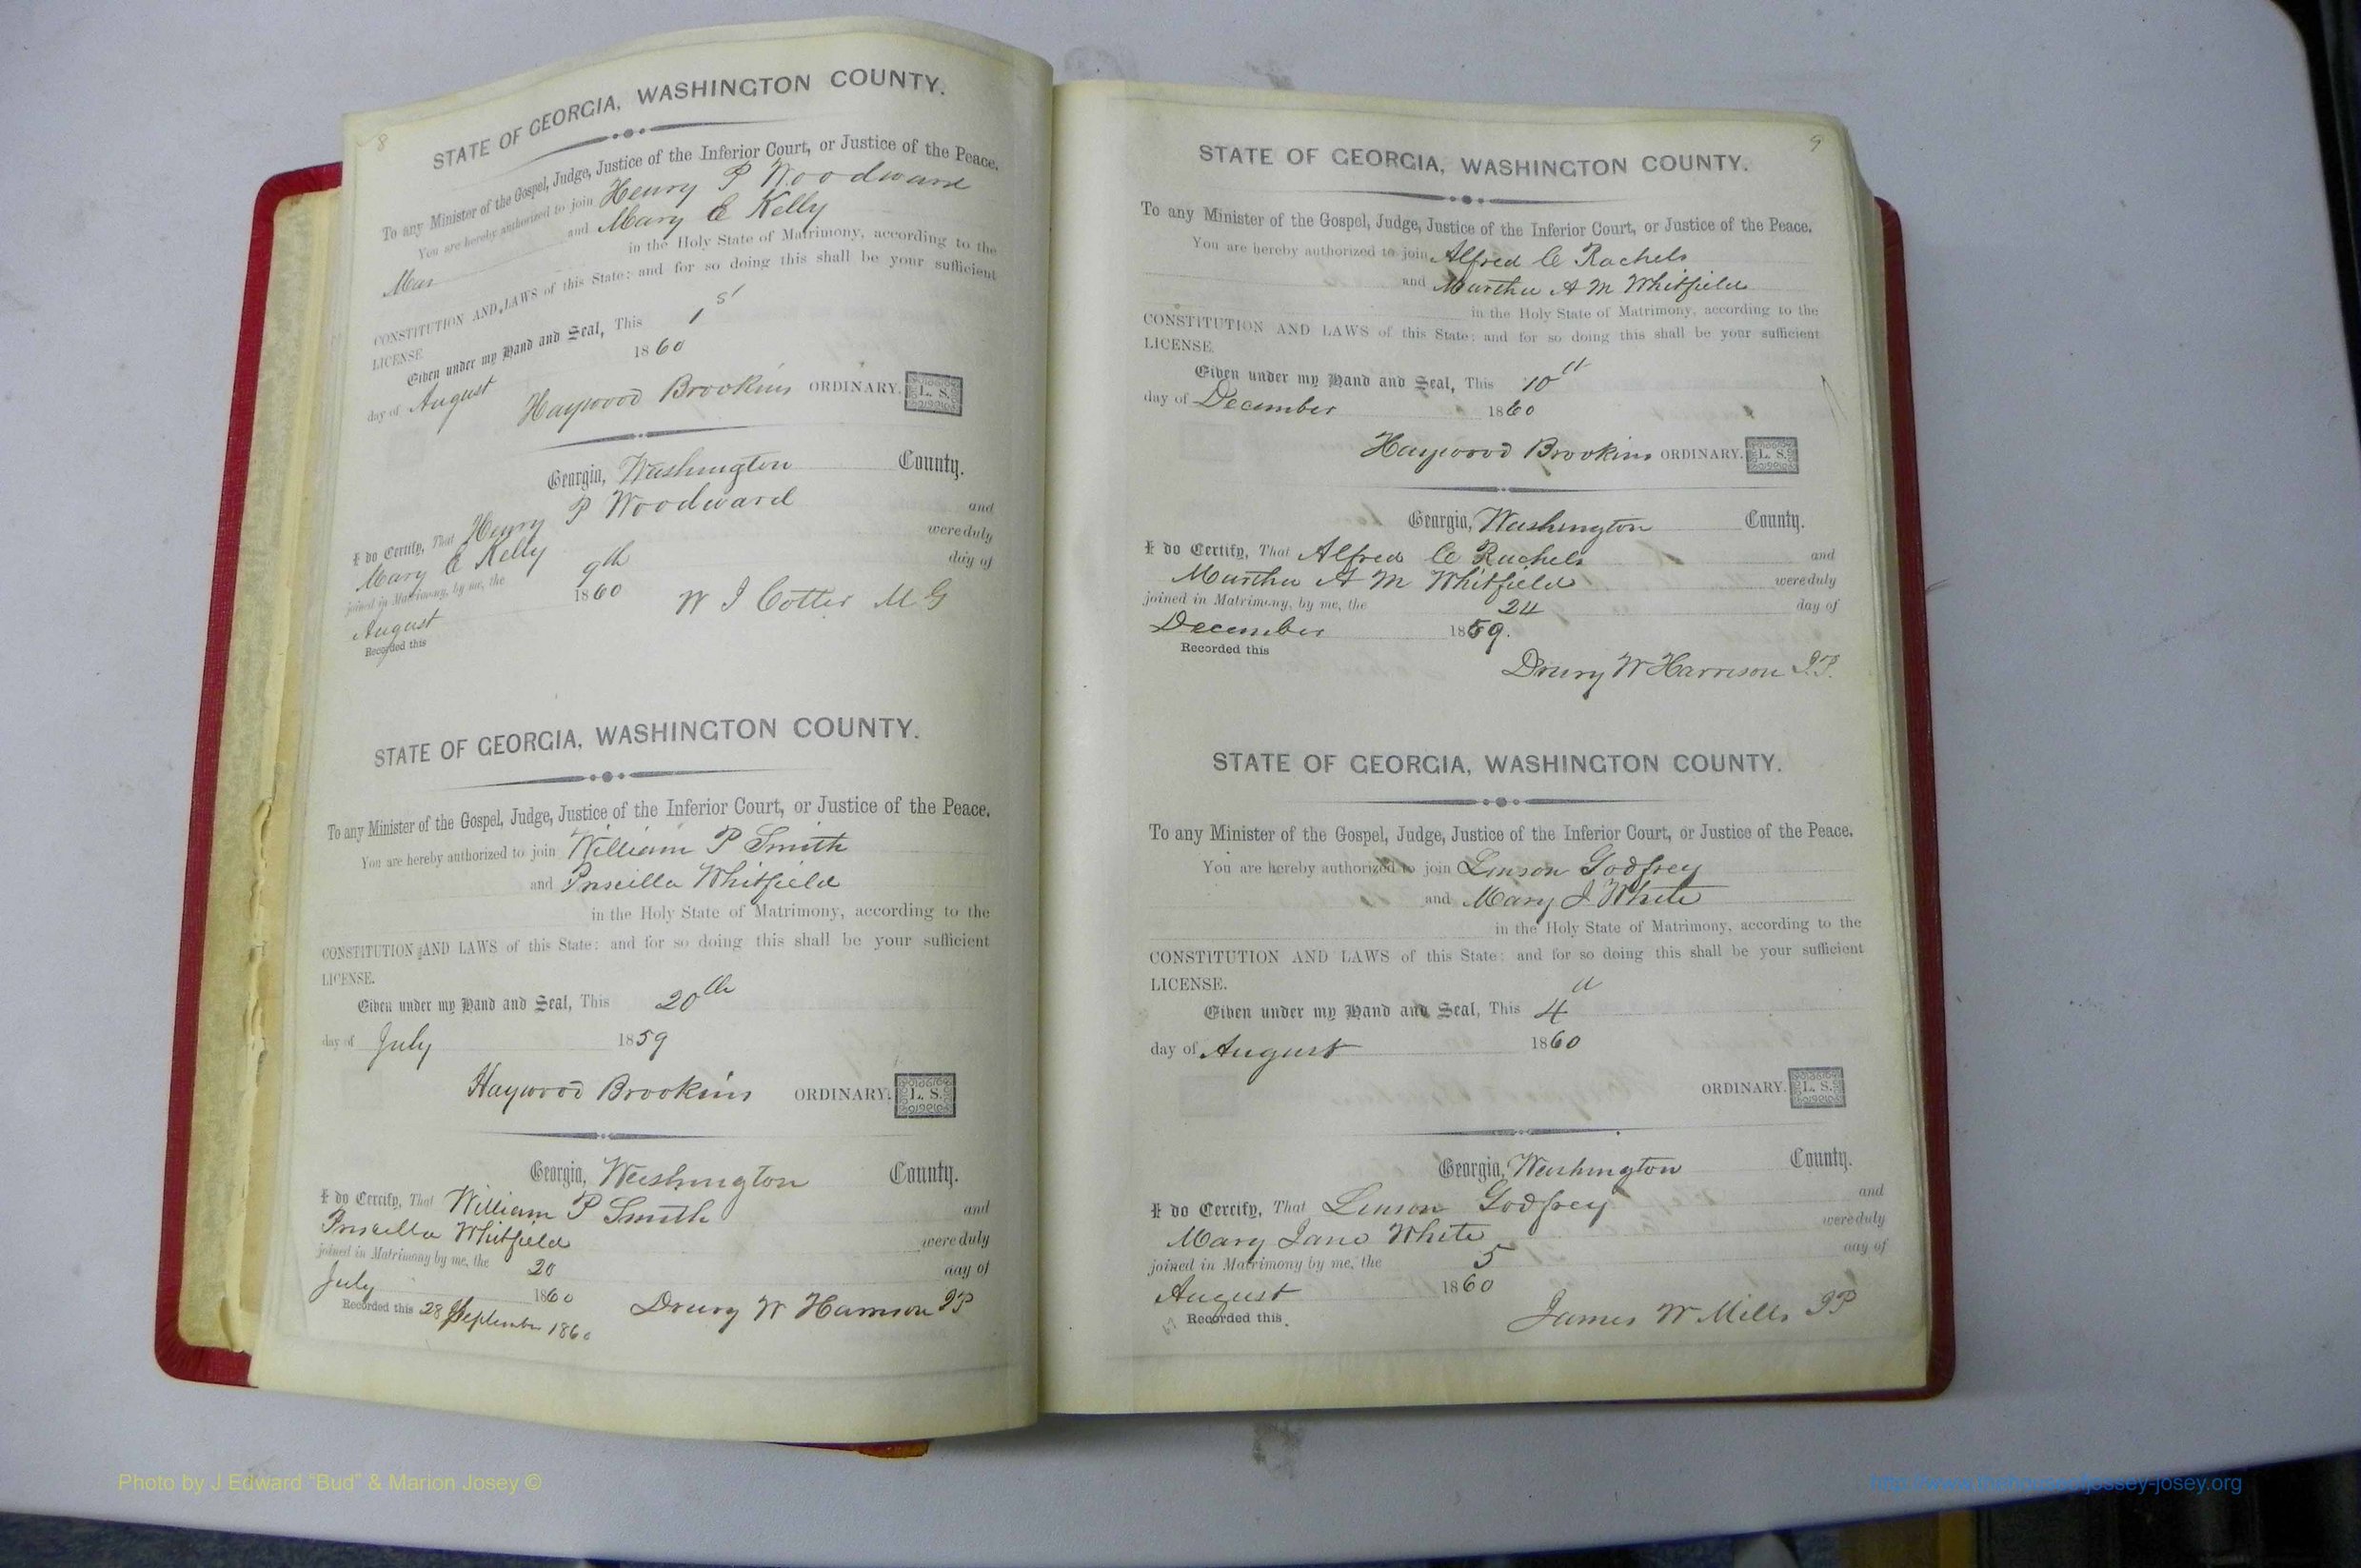 8
STATE OF GEORGIA, WASHINGTON COUNTY.
To any Minister of the Gospel, Judge, Justice of the Inferior Court, or Justice of the Peace.
You are hereby authorized to join Henry P Woodward
and Mary E Kelly
Mar in the Holy State of Matrimony, according to the
CONSTITUTION AND LAWS of this State: and for so doing this shall be your sufficient
LICENSE
Given under my Hand and Seal, This 1st
day of August 1860
Haywood Brookins ORDINARY. L. S.
Georgia, Washington County.
I do Certify, That Henry P Woodward and
Mary E Kelly were duly
joined in Matrimony, by me, the 9th day of
August 1860 W J Cotter M G
Recorded this
STATE OF GEORGIA, WASHINGTON COUNTY.
To any Minister of the Gospel, Judge, Justice of the Inferior Court, or Justice of the Peace.
You are hereby authorized to join William P Smith
and Priscilla Whitfield
in the Holy State of Matrimony, according to the
CONSTITUTION AND LAWS of this State: and for so doing this shall be your sufficient
LICENSE.
Given under my Hand and Seal, This 20th
day of July 1859
Haywood Brookins ORDINARY. L. S.
Georgia, Washington County.
I do Certify, That William P Smith and
Priscilla Whitfield were duly
joined in Matrimony by me, the 20 day of
July 1860
Recorded this 28 September 1860 Drury W Harrison JP
9
STATE OF GEORGIA, WASHINGTON COUNTY.
To any Minister of the Gospel, Judge, Justice of the Inferior Court, or Justice of the Peace.
You are hereby authorized to join Alfred C Rachels
and Martha A M Whitfield
in the Holy State of Matrimony, according to the
CONSTITUTION AND LAWS of this State; and for so doing this shall be your sufficient
LICENSE.
Given under my Hand and Seal, This 10"
day of December 1860
Haywood Brookins ORDINARY. L. S.
Georgia, Washington County.
I do Certify, That Alfred C Rachels and
Martha A M Whitfield were duly
joined in Matrimony, by me, the 24 day of
December 1859.
Recorded this
Drury W Harrison J.P.
STATE OF GEORGIA, WASHINGTON COUNTY.
To any Minister of the Gospel, Judge, Justice of the Inferior Court, or Justice of the Peace.
You are hereby authorized to join Linson Godfrey
and Mary J White
in the Holy State of Matrimony, according to the
CONSTITUTION AND LAWS of this State: and for so doing this shall be your sufficient
LICENSE.
Given under my Hand and Seal, This 4"
day of August 1860
ORDINARY. L. S.
Georgia, Washington County.
I do Certify, That Linson Godfrey and
Mary Jane White were duly
joined in Matrimony by me, the 5 day of
August 1860
Recorded this
James W Mills JP
Photo by J Edward “Bud” & Marion Josey ©
http://www.thehouseofjossey-josey.org